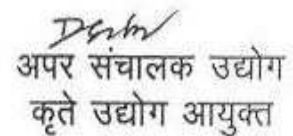 अपर संचालक उद्योग
कृते उद्योग आयुक्त